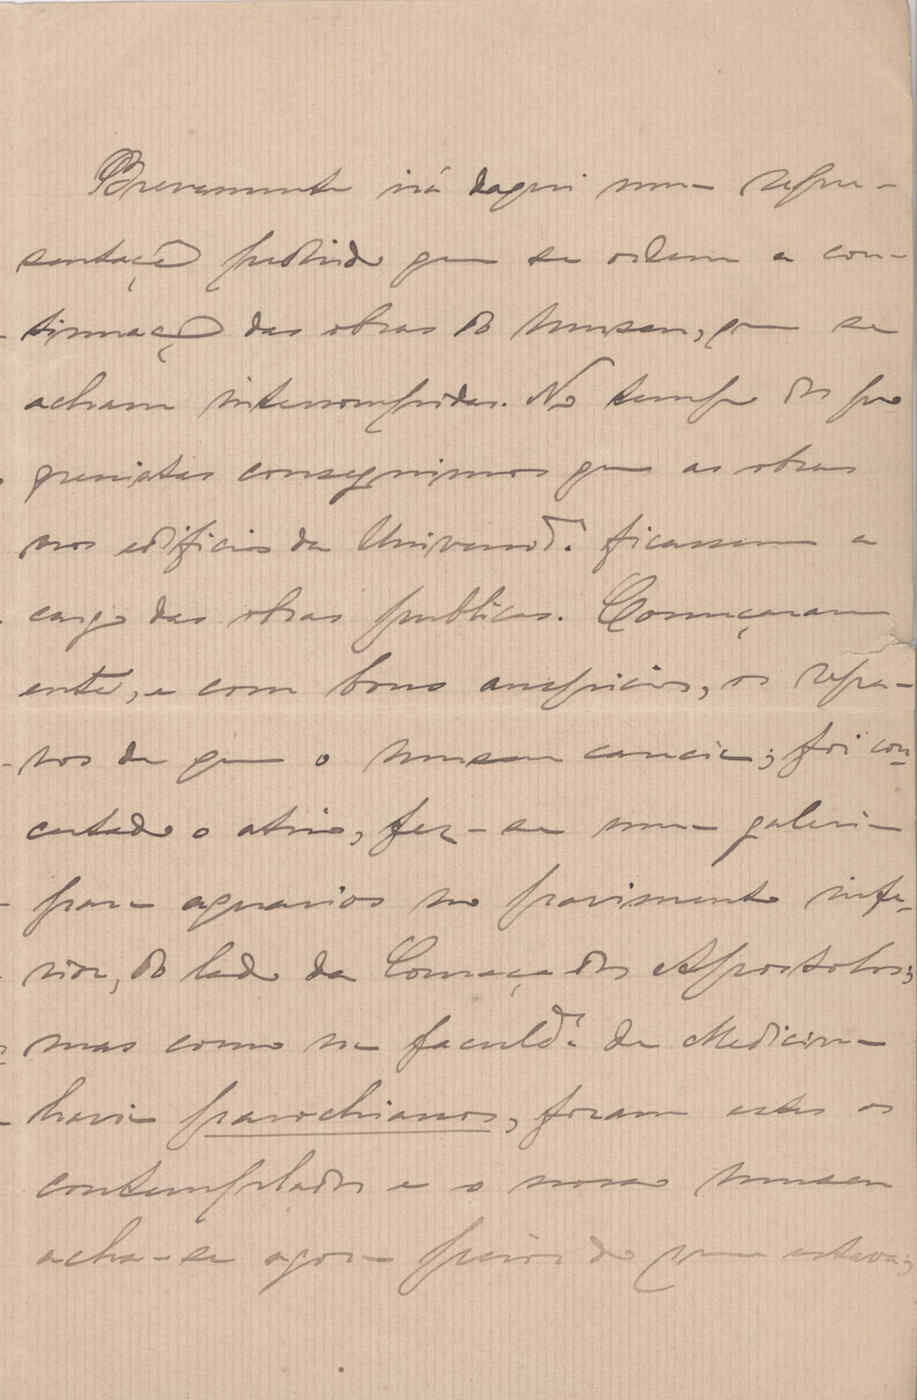 Brevemente irá daqui uma repre-
sentação pedindo que se ordene a con-
tinuação das obras do Museu, que se
acham interrompidas. No tempo dos pro
gressistas conseguimos que as obras
nos edificios da Universid.ᵉ ficassem a
cargo das obras publicas. Começaram
então, e com bons auspicios, os repa-
ros de que o museu carecia; foi con-
certado o atrio, fez-se uma galeria
para aquarios no pavimento infe-
rior, do lado da Couraça dos Apostolos;
mas como na faculd.ᵉ de Medicina
havia parochianos, foram estes os
contemplados e o nosso museu
acha-se agora peior do que estava;